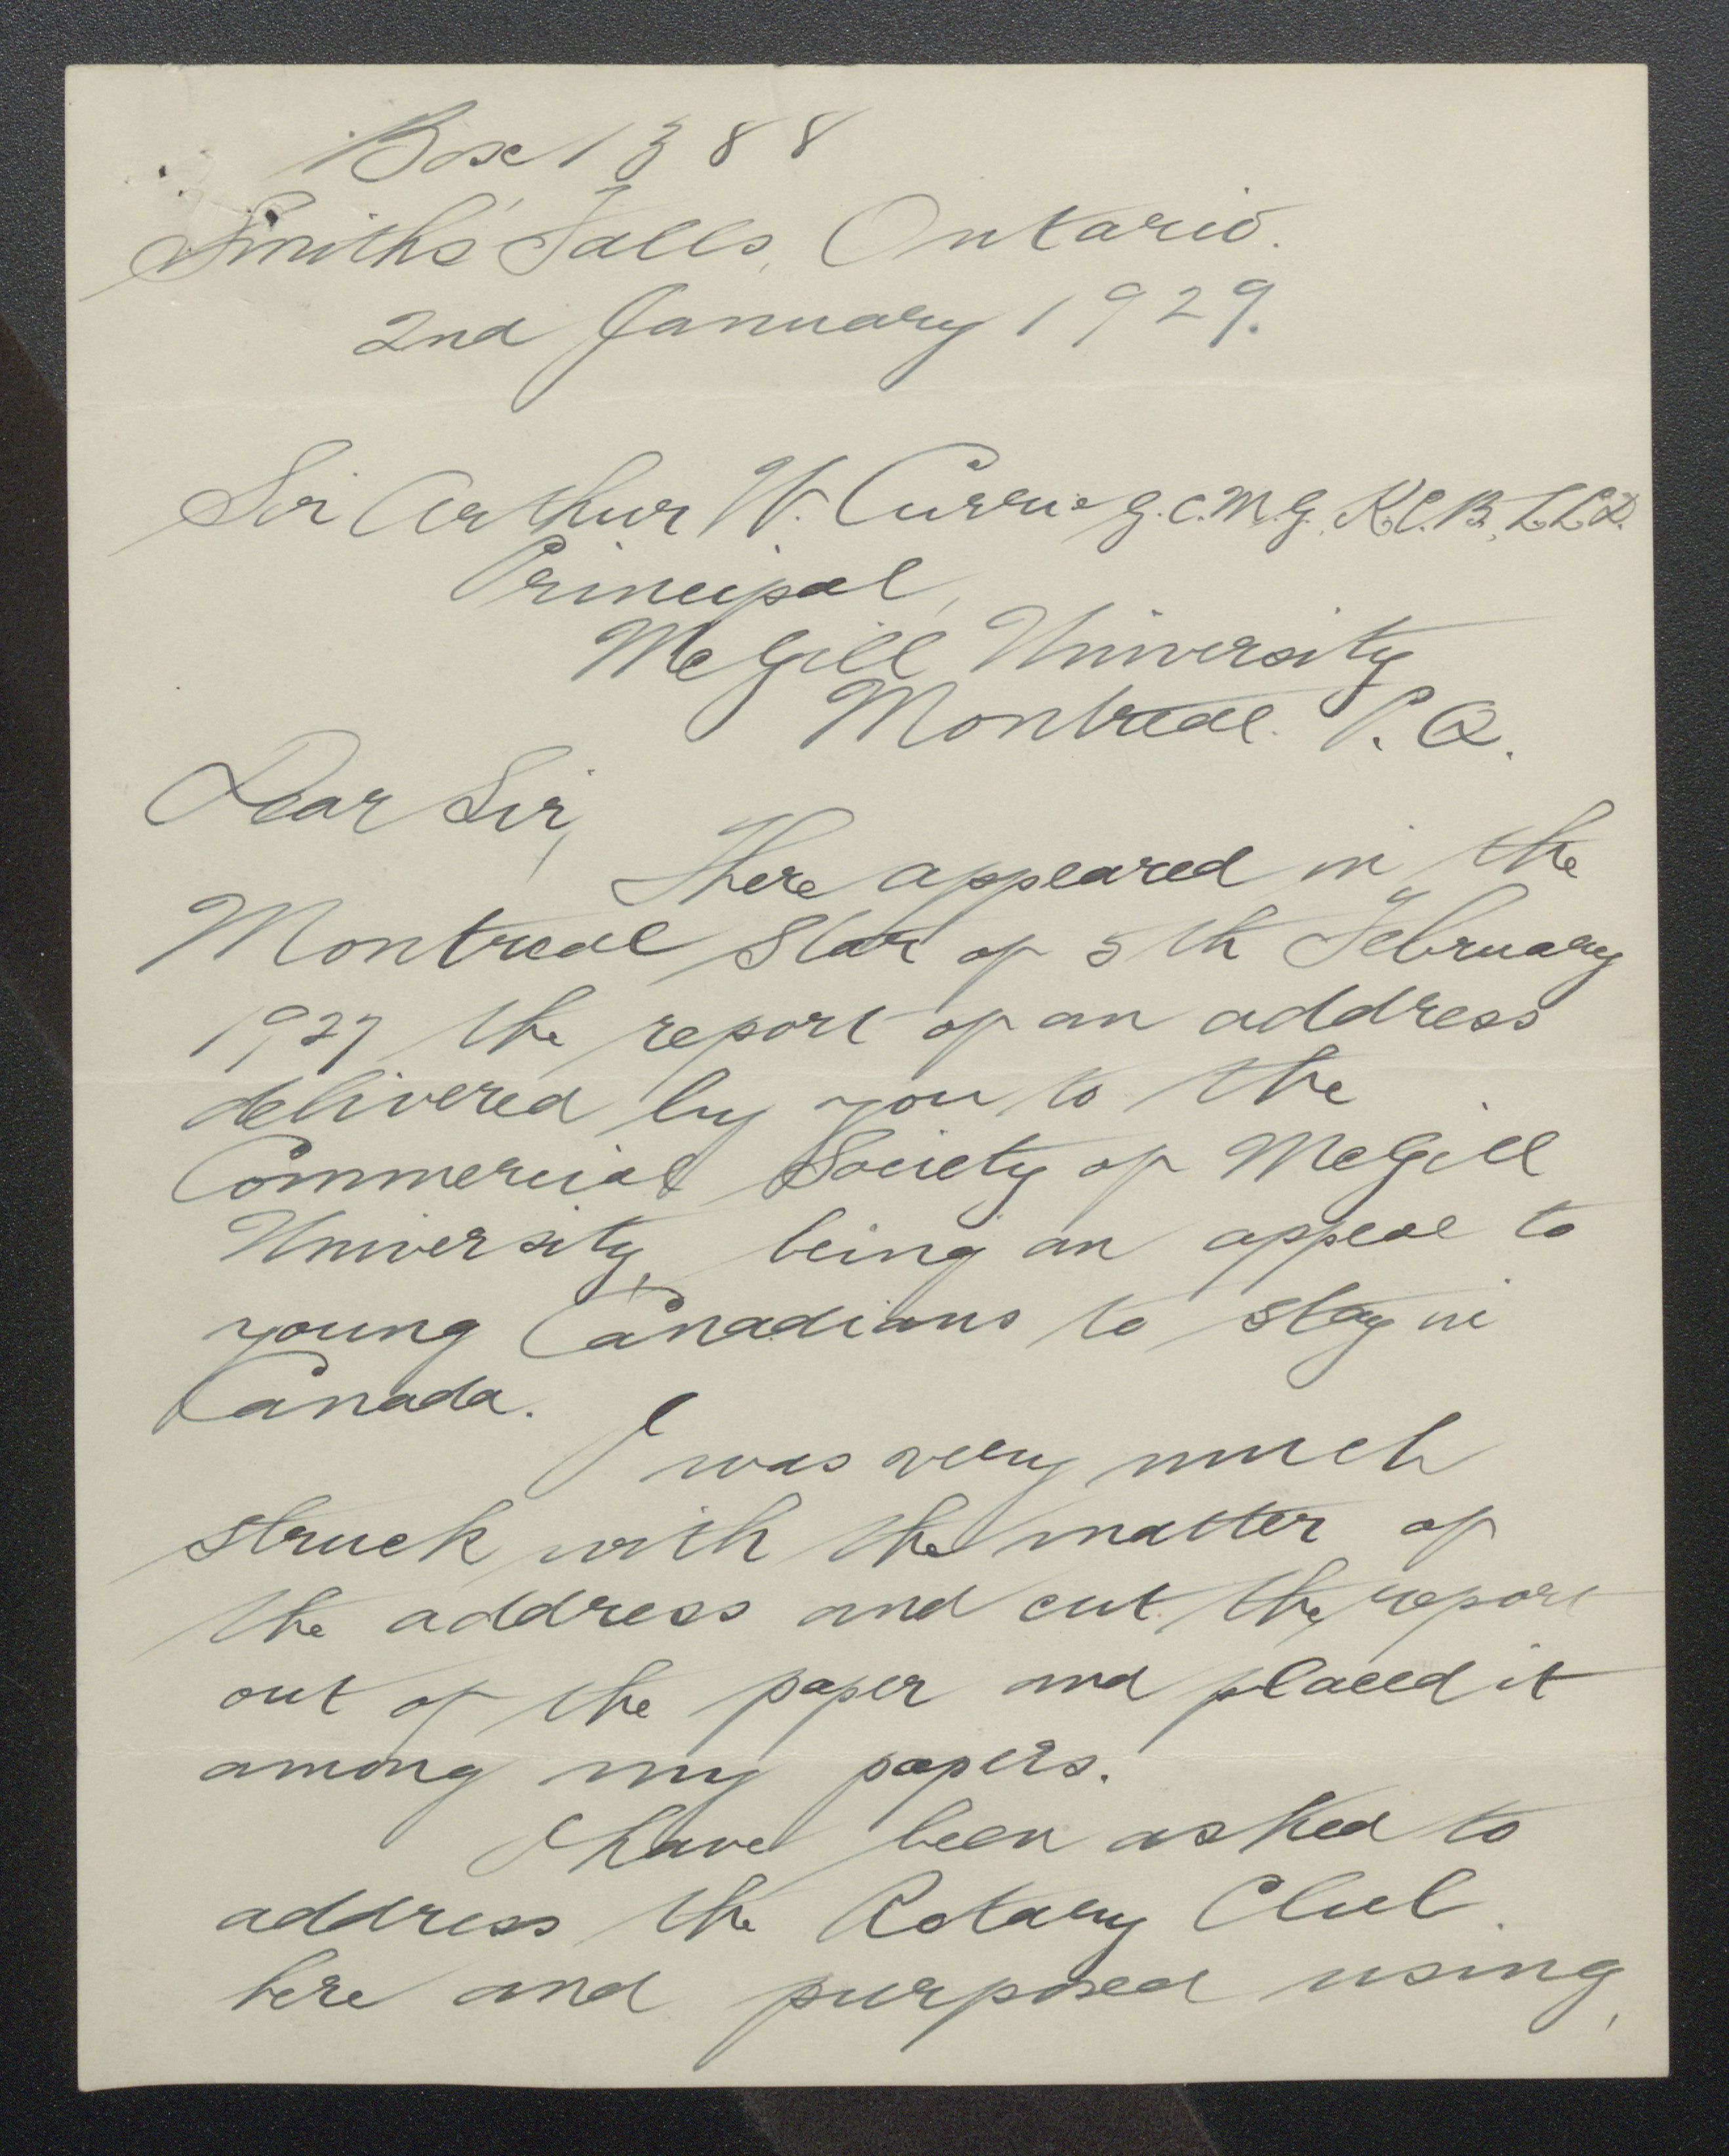 Box 1388
Smith's Falls, Ontario.
2nd January 1929.
Sir Arthur W. Currie G.C.M.G., K.C.B., LLD.
Principal,
McGill University
Montreal. P.Q.
Dear Sir,
There appeared in the
Montreal Star of 5th February
1927 the report of an address
delivered by you to the
Commercial Society of McGill
University, being an appeal to
young Canadians to stay in
Canada.
I was very much
struck with the matter of
the address and cut the report
out of the paper and placed it
among my papers.
I have been asked to
address the Rotary Club
here and purposed using